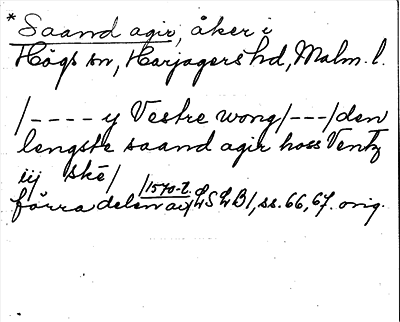 * Saand agir, åker i
Högs sn, Harjagers hd, Malm. l.
/---- y Vestre wong/---/den
lengste saand agir hoss Ventz
iij ske/
/1570-t.
förra delen av/ LSLB1, ss. 66, 67. orig.